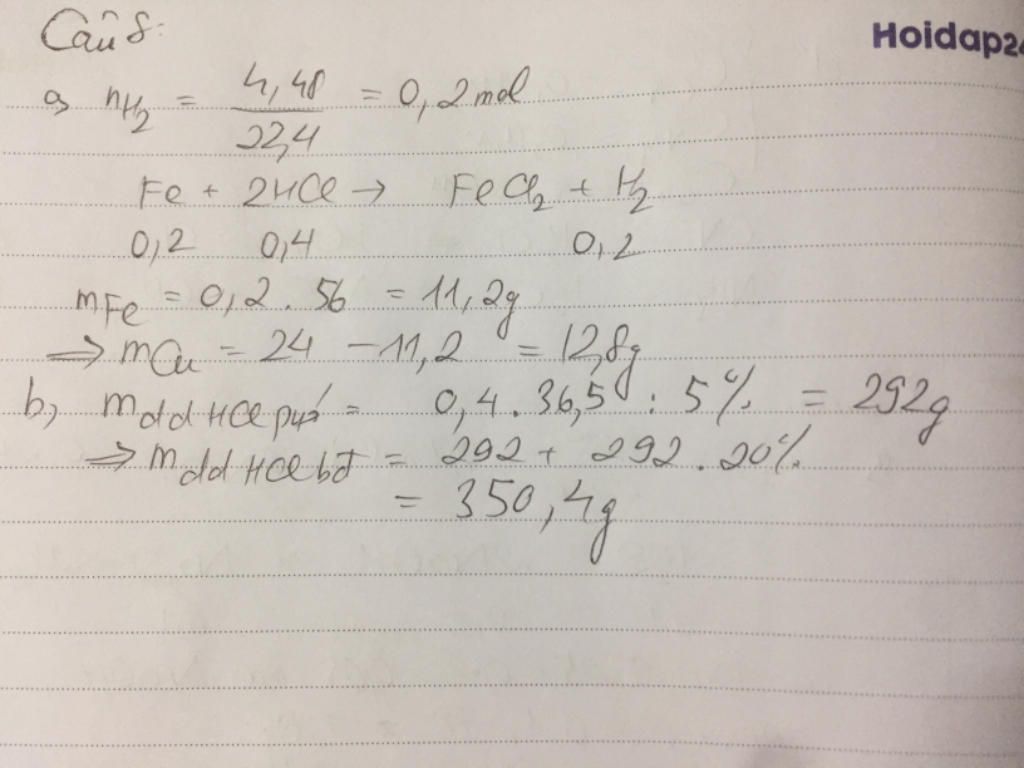 Câu 8:
Hoidap24
a) nH₂ = 4,48 / 22,4 = 0,2 mol
Fe + 2HCl → FeCl₂ + H₂
0,2 0,4 0,2
mFe = 0,2 . 56 = 11,2g
⇒ mCu = 24 - 11,2 = 12,8g
b, mdd HCl pứ = 0,4 . 36,5 : 5% = 292g
⇒ mdd HCl bđ = 292 + 292 . 20%
= 350,4g